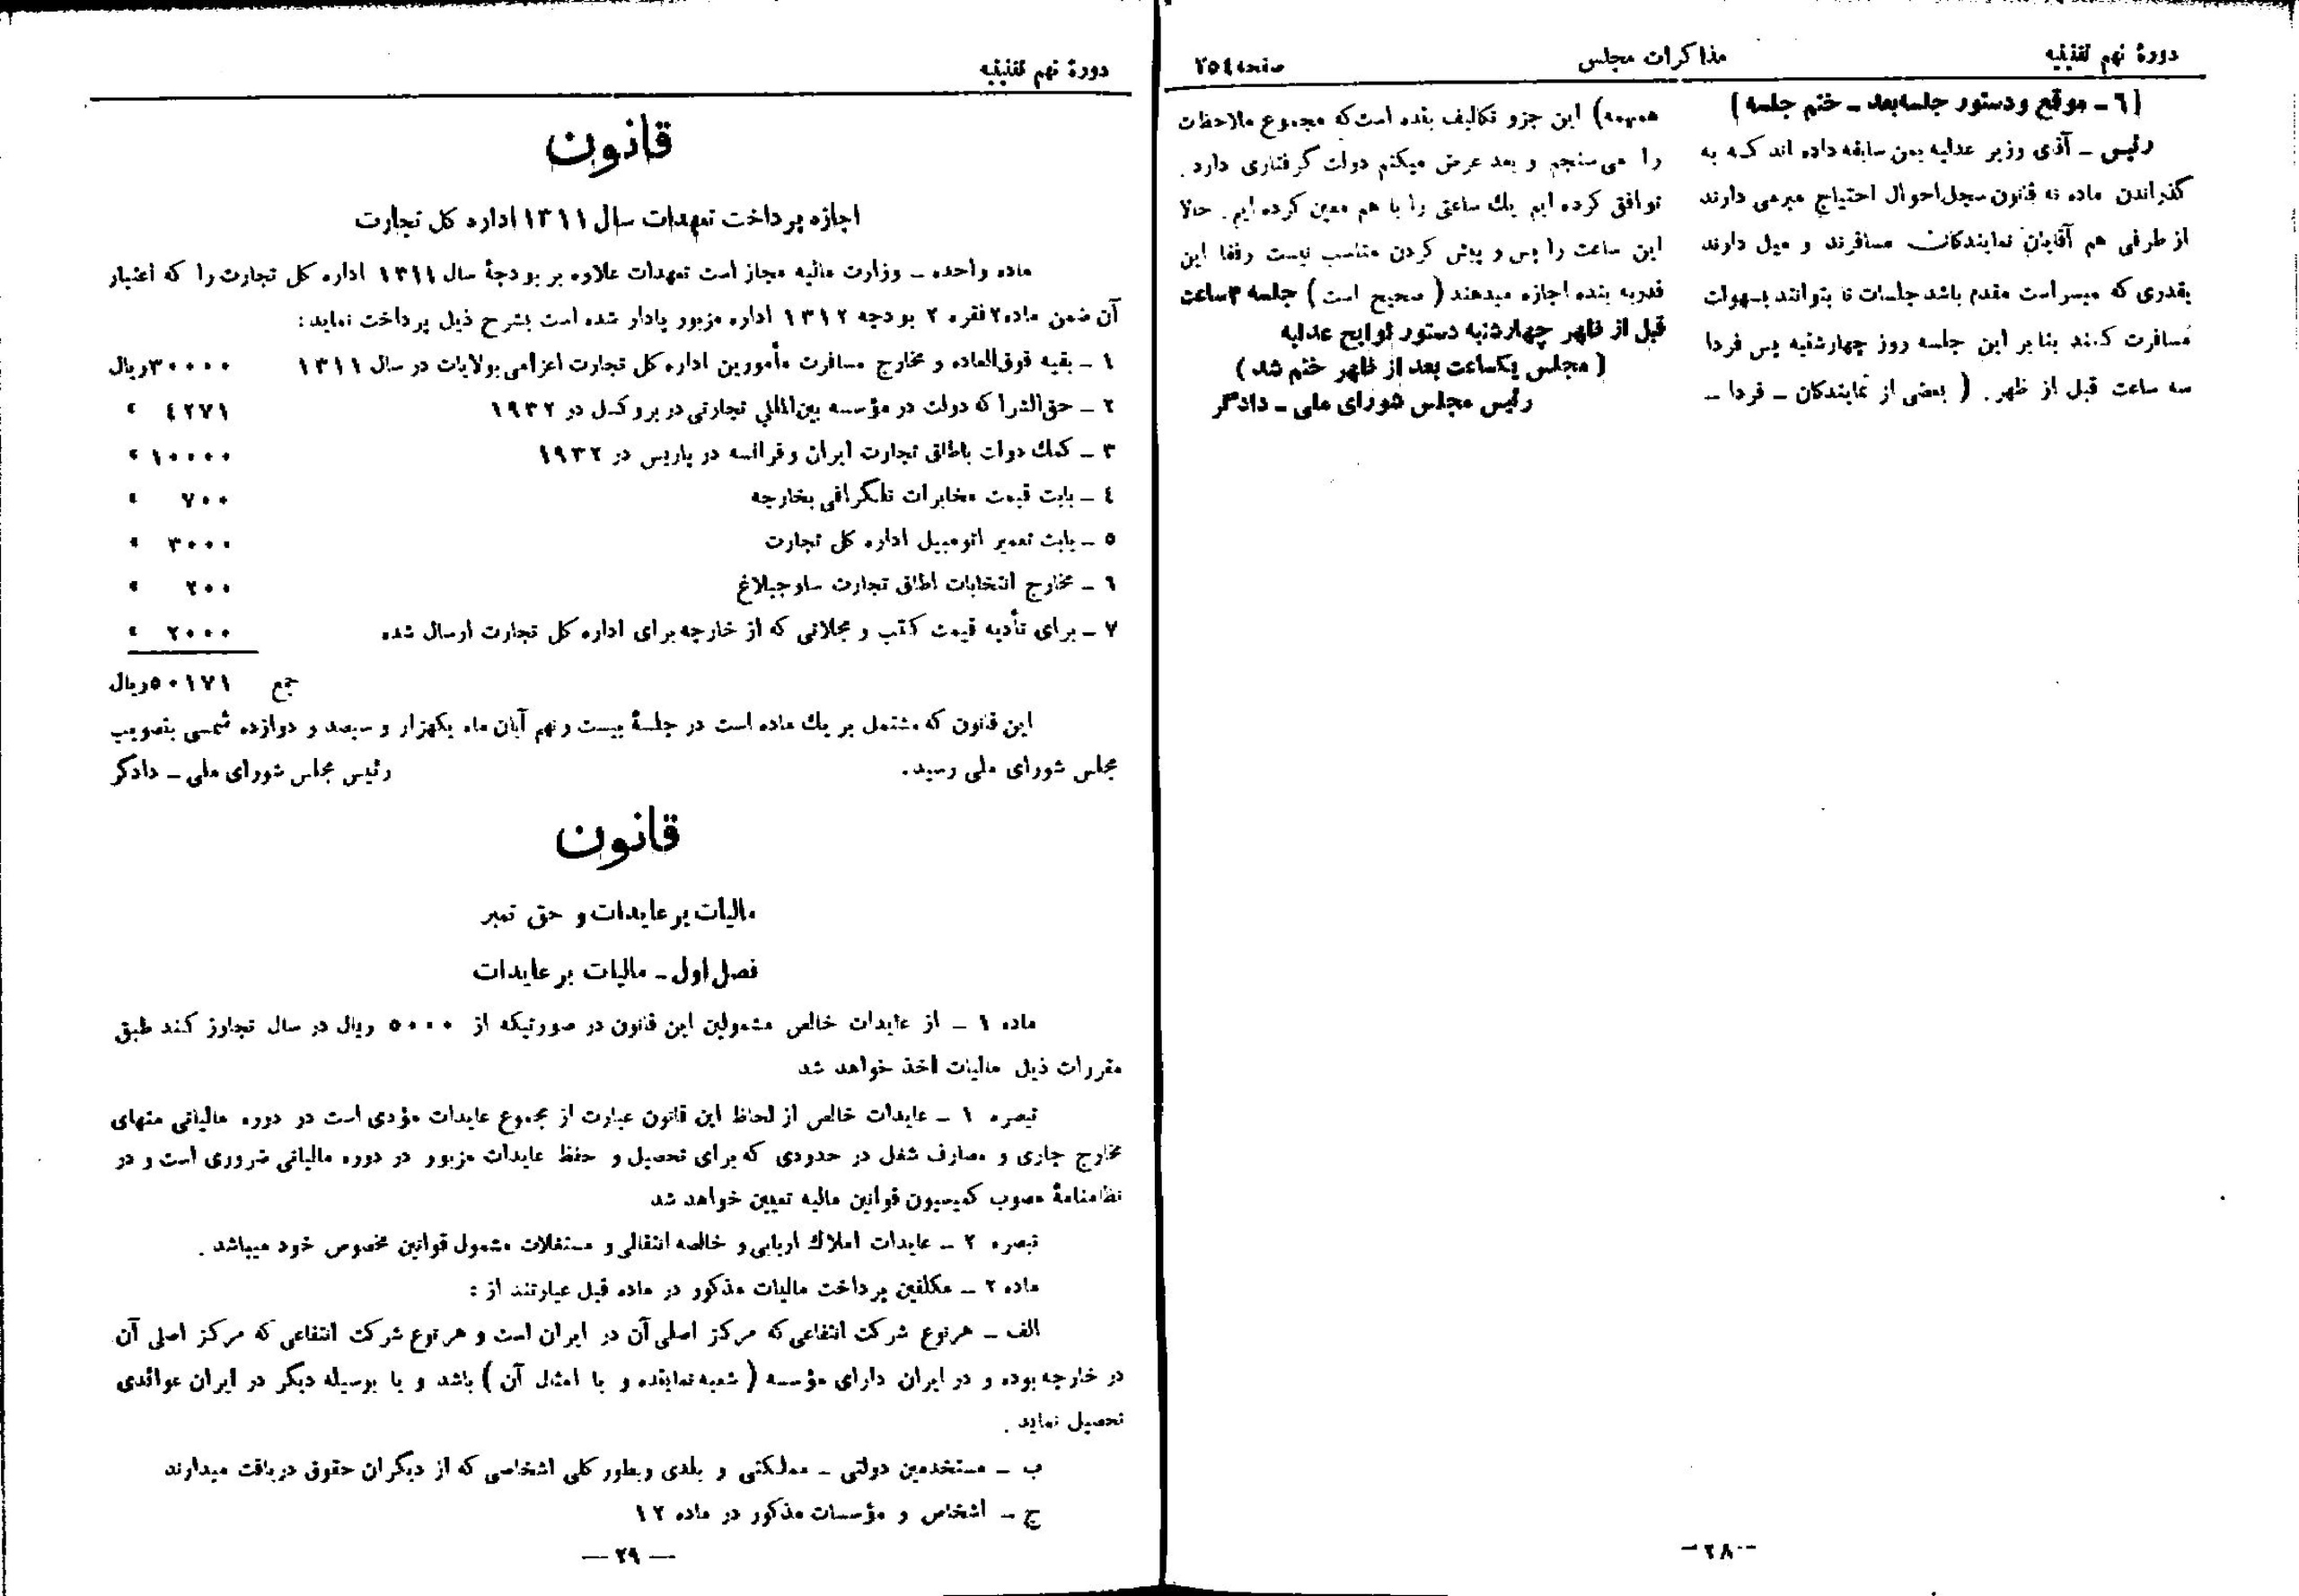 دورهٔ نهم تقنینیه
مذاکرات مجلس
صفحه ٢٥٤
[٦ - موقع و دستور جلسه بعد - ختم جلسه]
رئیس - آقای وزیر عدلیه بمن سابقه داده اند که به
گذراندن ماده نه قانون سجل احوال احتیاج مبرمی دارند
از طرفی هم آقایان نمایندگان مسافرند و میل دارند
بقدری که میسر است مقدم باشد جلسات تا بتوانند بسهولت
مسافرت کنند بنابر این جلسه روز چهارشنبه پس فردا
سه ساعت قبل از ظهر. ( بعضی از نمایندگان - فردا -
همهمه) این جزو تکالیف بنده است که مجموع ملاحظات
را می‌سنجم و بعد عرض میکنم دولت گرفتاری دارد.
توافق کرده ایم یك ساعتی را با هم معین کرده ایم. حالا
این ساعت را پس و پیش کردن مناسب نیست رفقا این
قدر به بنده اجازه میدهند ( صحیح است ) جلسه ٣ ساعت
قبل از ظهر چهارشنبه دستور لوایح عدلیه
( مجلس یکساعت بعد از ظهر ختم شد )
رئیس مجلس شورای ملی - دادگر
-٢٨-
دورهٔ نهم تقنینیه
قانون
اجازه پرداخت تعهدات سال ١٣١١ اداره کل تجارت
ماده واحده - وزارت مالیه مجاز است تعهدات علاوه بر بودجهٔ سال ١٣١١ اداره کل تجارت را که اعتبار
آن ضمن ماده ٢ فقره ٢ بودجه ١٣١٢ اداره مزبور یادار شده است بشرح ذیل پرداخت نماید:
١ - بقیه فوق‌العاده و مخارج مسافرت مأمورین اداره کل تجارت اعزامی بولایات در سال ١٣١١ ٣٠٠٠٠ ریال
٢ - حق‌الشراکه دولت در مؤسسه بین‌المللی تجارتی در بروکسل در ١٩٣٢ ٤٢٧١ «
٣ - کمك دولت باطاق تجارت ایران و فرانسه در پاریس در ١٩٣٢ ١٠٠٠٠ «
٤ - بابت قیمت مخابرات تلگرافی بخارجه ٧٠٠ «
٥ - بابت تعمیر اتومبیل اداره کل تجارت ٣٠٠٠ «
٦ - مخارج انتخابات اطاق تجارت ساوجبلاغ ٢٠٠ «
٧ - برای تأدیه قیمت کتب و مجلاتی که از خارجه برای اداره کل تجارت ارسال شده ٢٠٠٠ «
جمع ٥٠١٧١ ریال
این قانون که مشتمل بر یك ماده است در جلسهٔ بیست و نهم آبان ماه یکهزار و سیصد و دوازده شمسی بتصویب
مجلس شورای ملی رسید. رئیس مجلس شورای ملی - دادگر
قانون
مالیات بر عایدات و حق تمبر
فصل اول - مالیات بر عایدات
ماده ١ - از عایدات خالص مشمولین این قانون در صورتیکه از ٥٠٠٠ ریال در سال تجاوز کند طبق
مقررات ذیل مالیات اخذ خواهد شد
تبصره ١ - عایدات خالص از لحاظ این قانون عبارت از مجموع عایدات مؤدی است در دوره مالیاتی منهای
مخارج جاری و مصارف شغل در حدودی که برای تحصیل و حفظ عایدات مزبور در دوره مالیاتی ضروری است و در
نظامنامهٔ مصوب کمیسیون قوانین مالیه تعیین خواهد شد
تبصره ٢ - عایدات املاك اربابی و خالصه انتقالی و مستغلات مشمول قوانین مخصوص خود میباشد.
ماده ٢ - مکلفین پرداخت مالیات مذکور در ماده قبل عبارتند از :
الف - هر نوع شرکت انتفاعی که مرکز اصلی آن در ایران است و هر نوع شرکت انتفاعی که مرکز اصلی آن
در خارجه بوده و در ایران دارای مؤسسه ( شعبه نماینده و یا امثال آن ) باشد و یا بوسیله دیگر در ایران عوائدی
تحصیل نماید.
ب - مستخدمین دولتی - مملکتی و بلدی و بطور کلی اشخاصی که از دیگران حقوق دریافت میدارند
ج - اشخاص و مؤسسات مذکور در ماده ١٢
— ٢٩ —